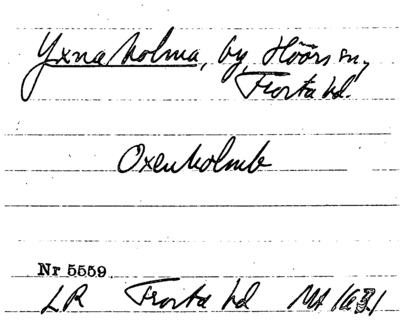 Yxnaholma, by, Höörs sn,
Frosta hd.
Oxenholmb
Nr 5559
LR Frosta hd Mt 1631